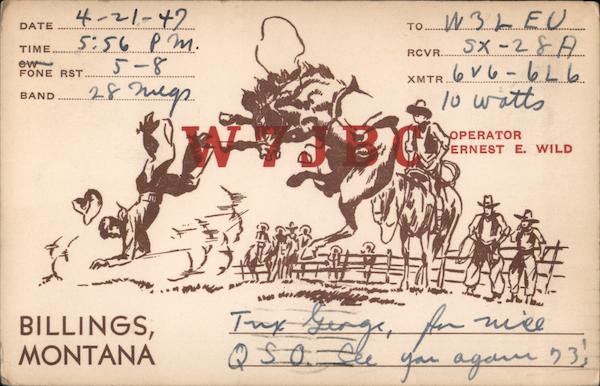 DATE 4-21-47
TIME 5:56 P.M.
CW
FONE RST 5-8
BAND 28 megs
TO W3LEU
RCVR SX-28A
XMTR 6V6-6L6
10 watts
W7JBC
OPERATOR
ERNEST E. WILD
BILLINGS,
MONTANA
Tnx George, for nice
Q S O. See you again 73's